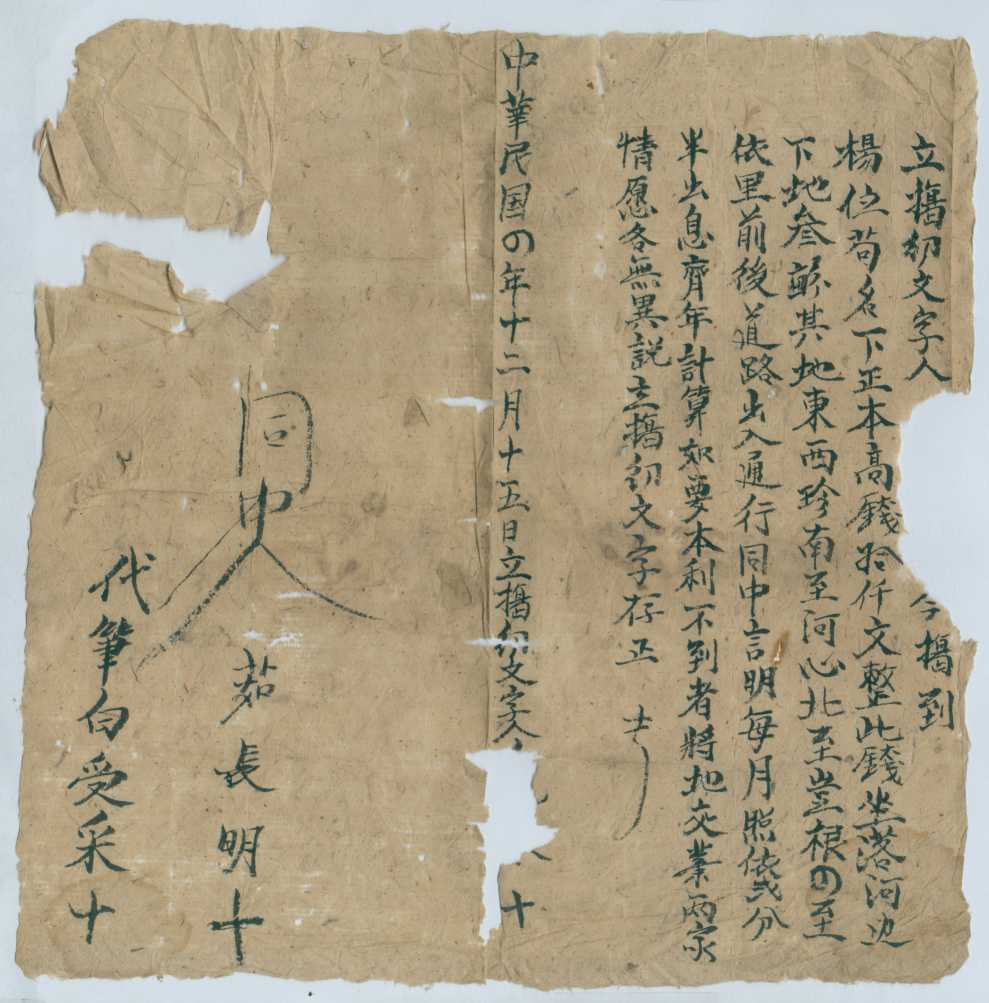 立揭約文字人 今揭到
楊位苟名下正本高錢拾仟文整此錢坐落河边
下地叁畝其地東西珍南至河心北至崖根四至
依里前後道路出入通行同中言明每月照依弍分
半出息齊年計算如要本利不到者將地交業兩家
情愿各無異説立揭約文字存正 士
中華民国四年十二月十五日立揭約文字人 十
同中人 茹長明十
代筆白受采十